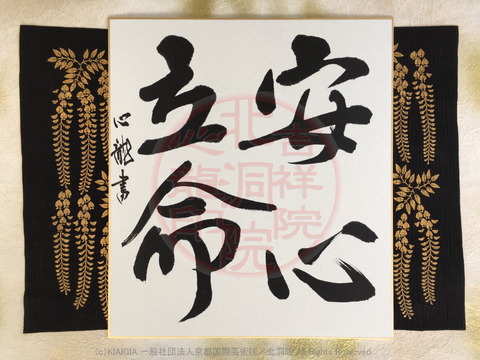 安心
立命
心龍書
吉祥院
北洞院
(c)KIAIGIA 一般社団法人京都国際芸術院／北洞院 All Rights Reserved.